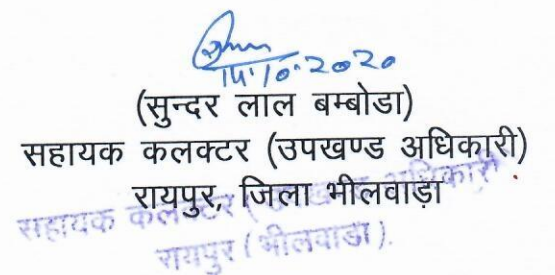 14.10.2020
(सुन्दर लाल बम्बोडा)
सहायक कलक्टर (उपखण्ड अधिकारी)
रायपुर, जिला भीलवाड़ा
सहायक कलक्टर (उपखण्ड अधिकारी
रायपुर (भीलवाडा).